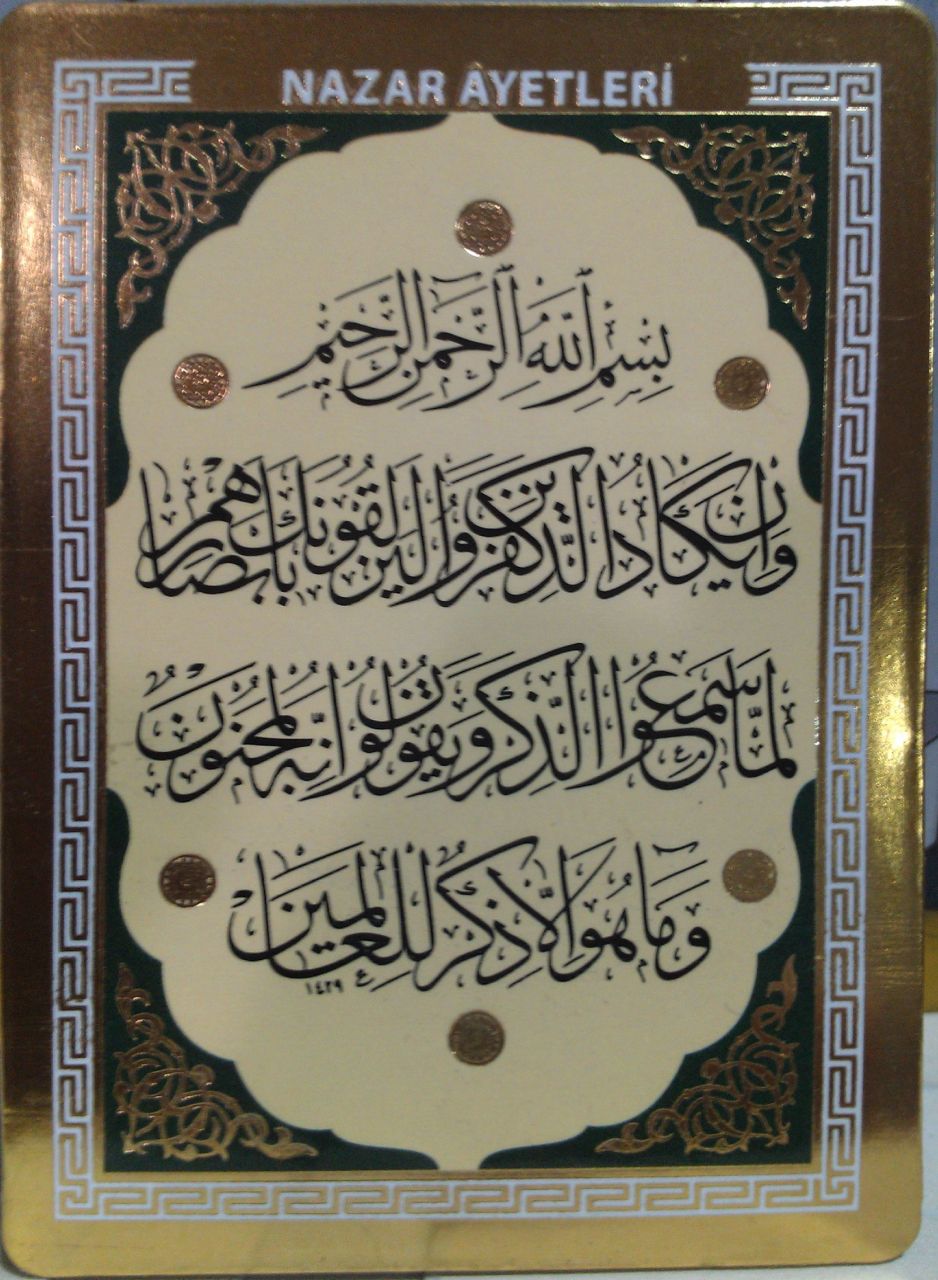 NAZAR ÂYETLERİ
بِسْمِ اللّٰهِ الرَّحْمٰنِ الرَّحِيمِ
وَاِنْ يَكَادُ الَّذِينَ كَفَرُوا لَيُزْلِقُونَكَ بِاَبْصَارِهِمْ
لَمَّا سَمِعُوا الذِّكْرَ وَيَقُولُونَ اِنَّهُ لَمَجْنُونٌ
وَمَا هُوَ اِلَّا ذِكْرٌ لِلْعَالَمِينَ
ع ١٤٢٩